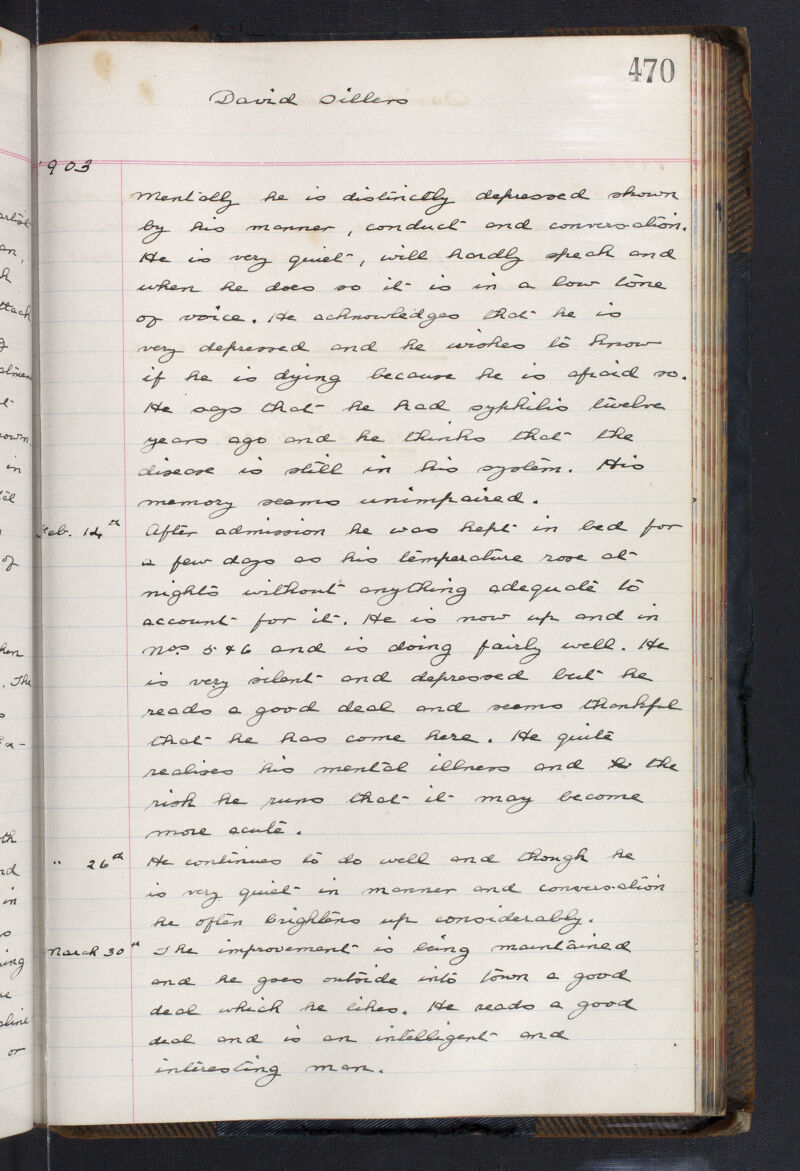 470
David Sillers
1903
Mentally he is distinctly depressed shown
by his manner, conduct and conversation.
He is very quiet, will hardly speak and
when he does so it is in a low tone
of voice. He acknowledges that he is
very depressed and he wishes to know
if he is dying because he is afraid so.
He says that he had syphilis twelve
years ago and he thinks that the
disease is still in his system. His
memory seems unimpaired.
Feb. 14th After admission he was kept in bed for
a few days as his temperature rose at
nights without anything adequate to
account for it. He is now up and in
Nos 5 & 6 and is doing fairly well. He
is very silent and depressed but he
reads a good deal and seems thankful
that he has come here. He quite
realises his mental illness and the
risk he runs that it may become
more acute.
" 26th He continues to do well and though he
is very quiet in manner and conversation
he often brightens up considerably.
March 30th The improvement is being maintained
and he goes outside into town a good
deal which he likes. He reads a good
deal and is an intelligent and
interesting man.